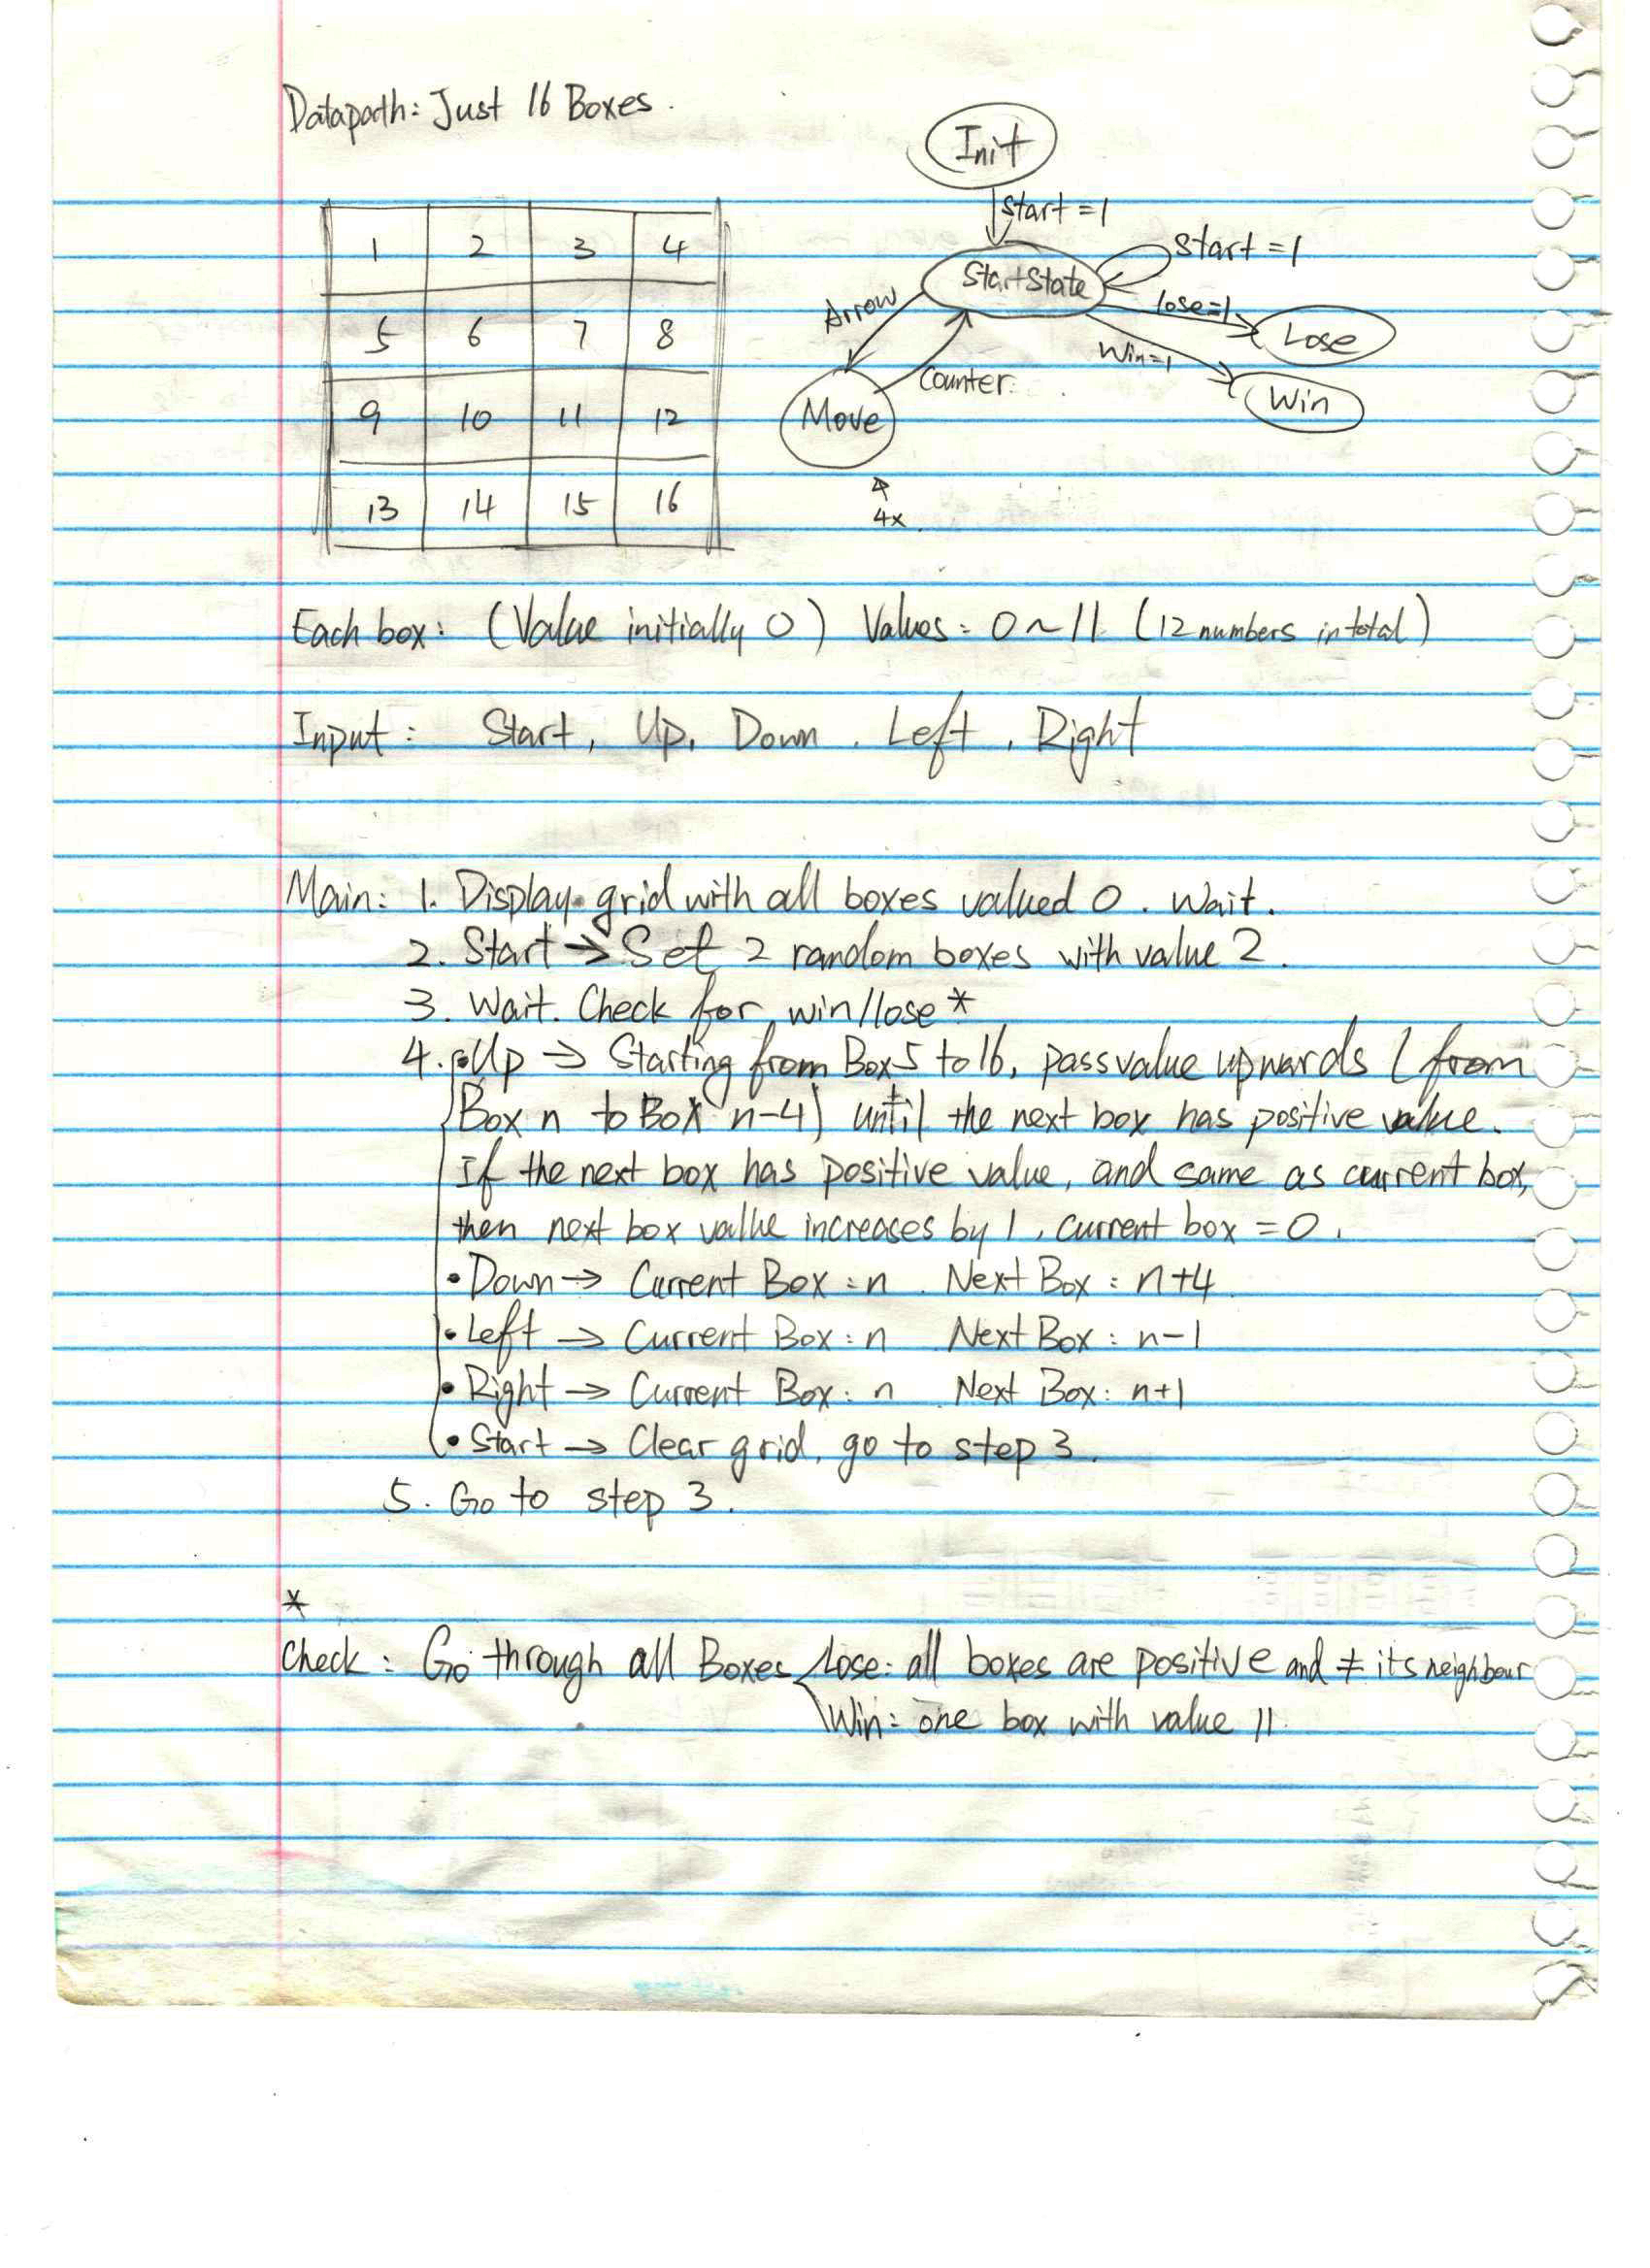 Datapath: Just 16 Boxes.
Init
Start = 1
1 2 3 4
StartState
Start = 1
Arrow
lose=1
Lose
5 6 7 8
Win=1
Counter.
Win
9 10 11 12
Move
13 14 15 16
4x
Each box: (Value initially 0) Values = 0 ~ 11 (12 numbers in total)
Input: Start, Up, Down, Left, Right
Main: 1. Display grid with all boxes valued 0. Wait.
2. Start → Set 2 random boxes with value 2.
3. Wait. Check for win/lose *
4. • Up → Starting from Box 5 to 16, pass value upwards (from
Box n to Box n-4) until the next box has positive value.
If the next box has positive value, and same as current box,
then next box value increases by 1, current box = 0.
• Down → Current Box: n Next Box: n+4
• Left → Current Box: n Next Box: n-1
• Right → Current Box: n Next Box: n+1
• Start → Clear grid, go to step 3.
5. Go to step 3.
*
Check: Go through all Boxes Lose: all boxes are positive and ≠ its neighbour
Win: one box with value 11